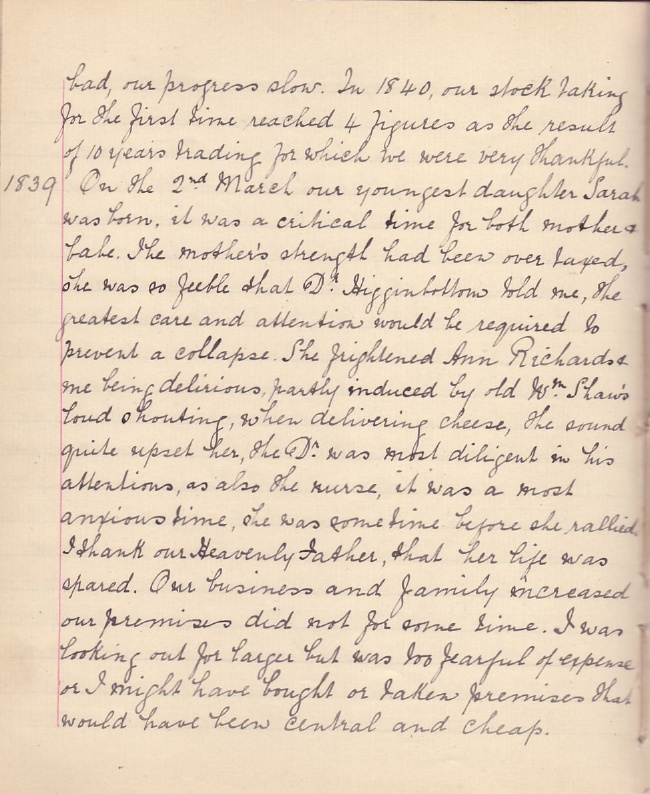 bad, our progress slow. In 1840, our stock taking
for the first time reached 4 figures as the result
of 10 years trading for which we were very thankful.
1839 On the 2nd March our youngest daughter Sarah
was born, it was a critical time for both mother &
babe. The mother's strength had been over taxed,
she was so feeble that Dr. Higginbottom told me, the
greatest care and attention would be required to
prevent a collapse. She frightened Ann Richards &
me being delirious, partly induced by old Wm. Shaw's
loud shouting, when delivering cheese, the sound
quite upset her, the Dr. was most diligent in his
attentions, as also the nurse, it was a most
anxious time, she was sometime before she rallied.
I thank our Heavenly Father, that her life was
spared. Our business and family increased
our premises did not for some time. I was
looking out for larger but was too fearful of expense
or I might have bought or taken premises that
would have been central and cheap.